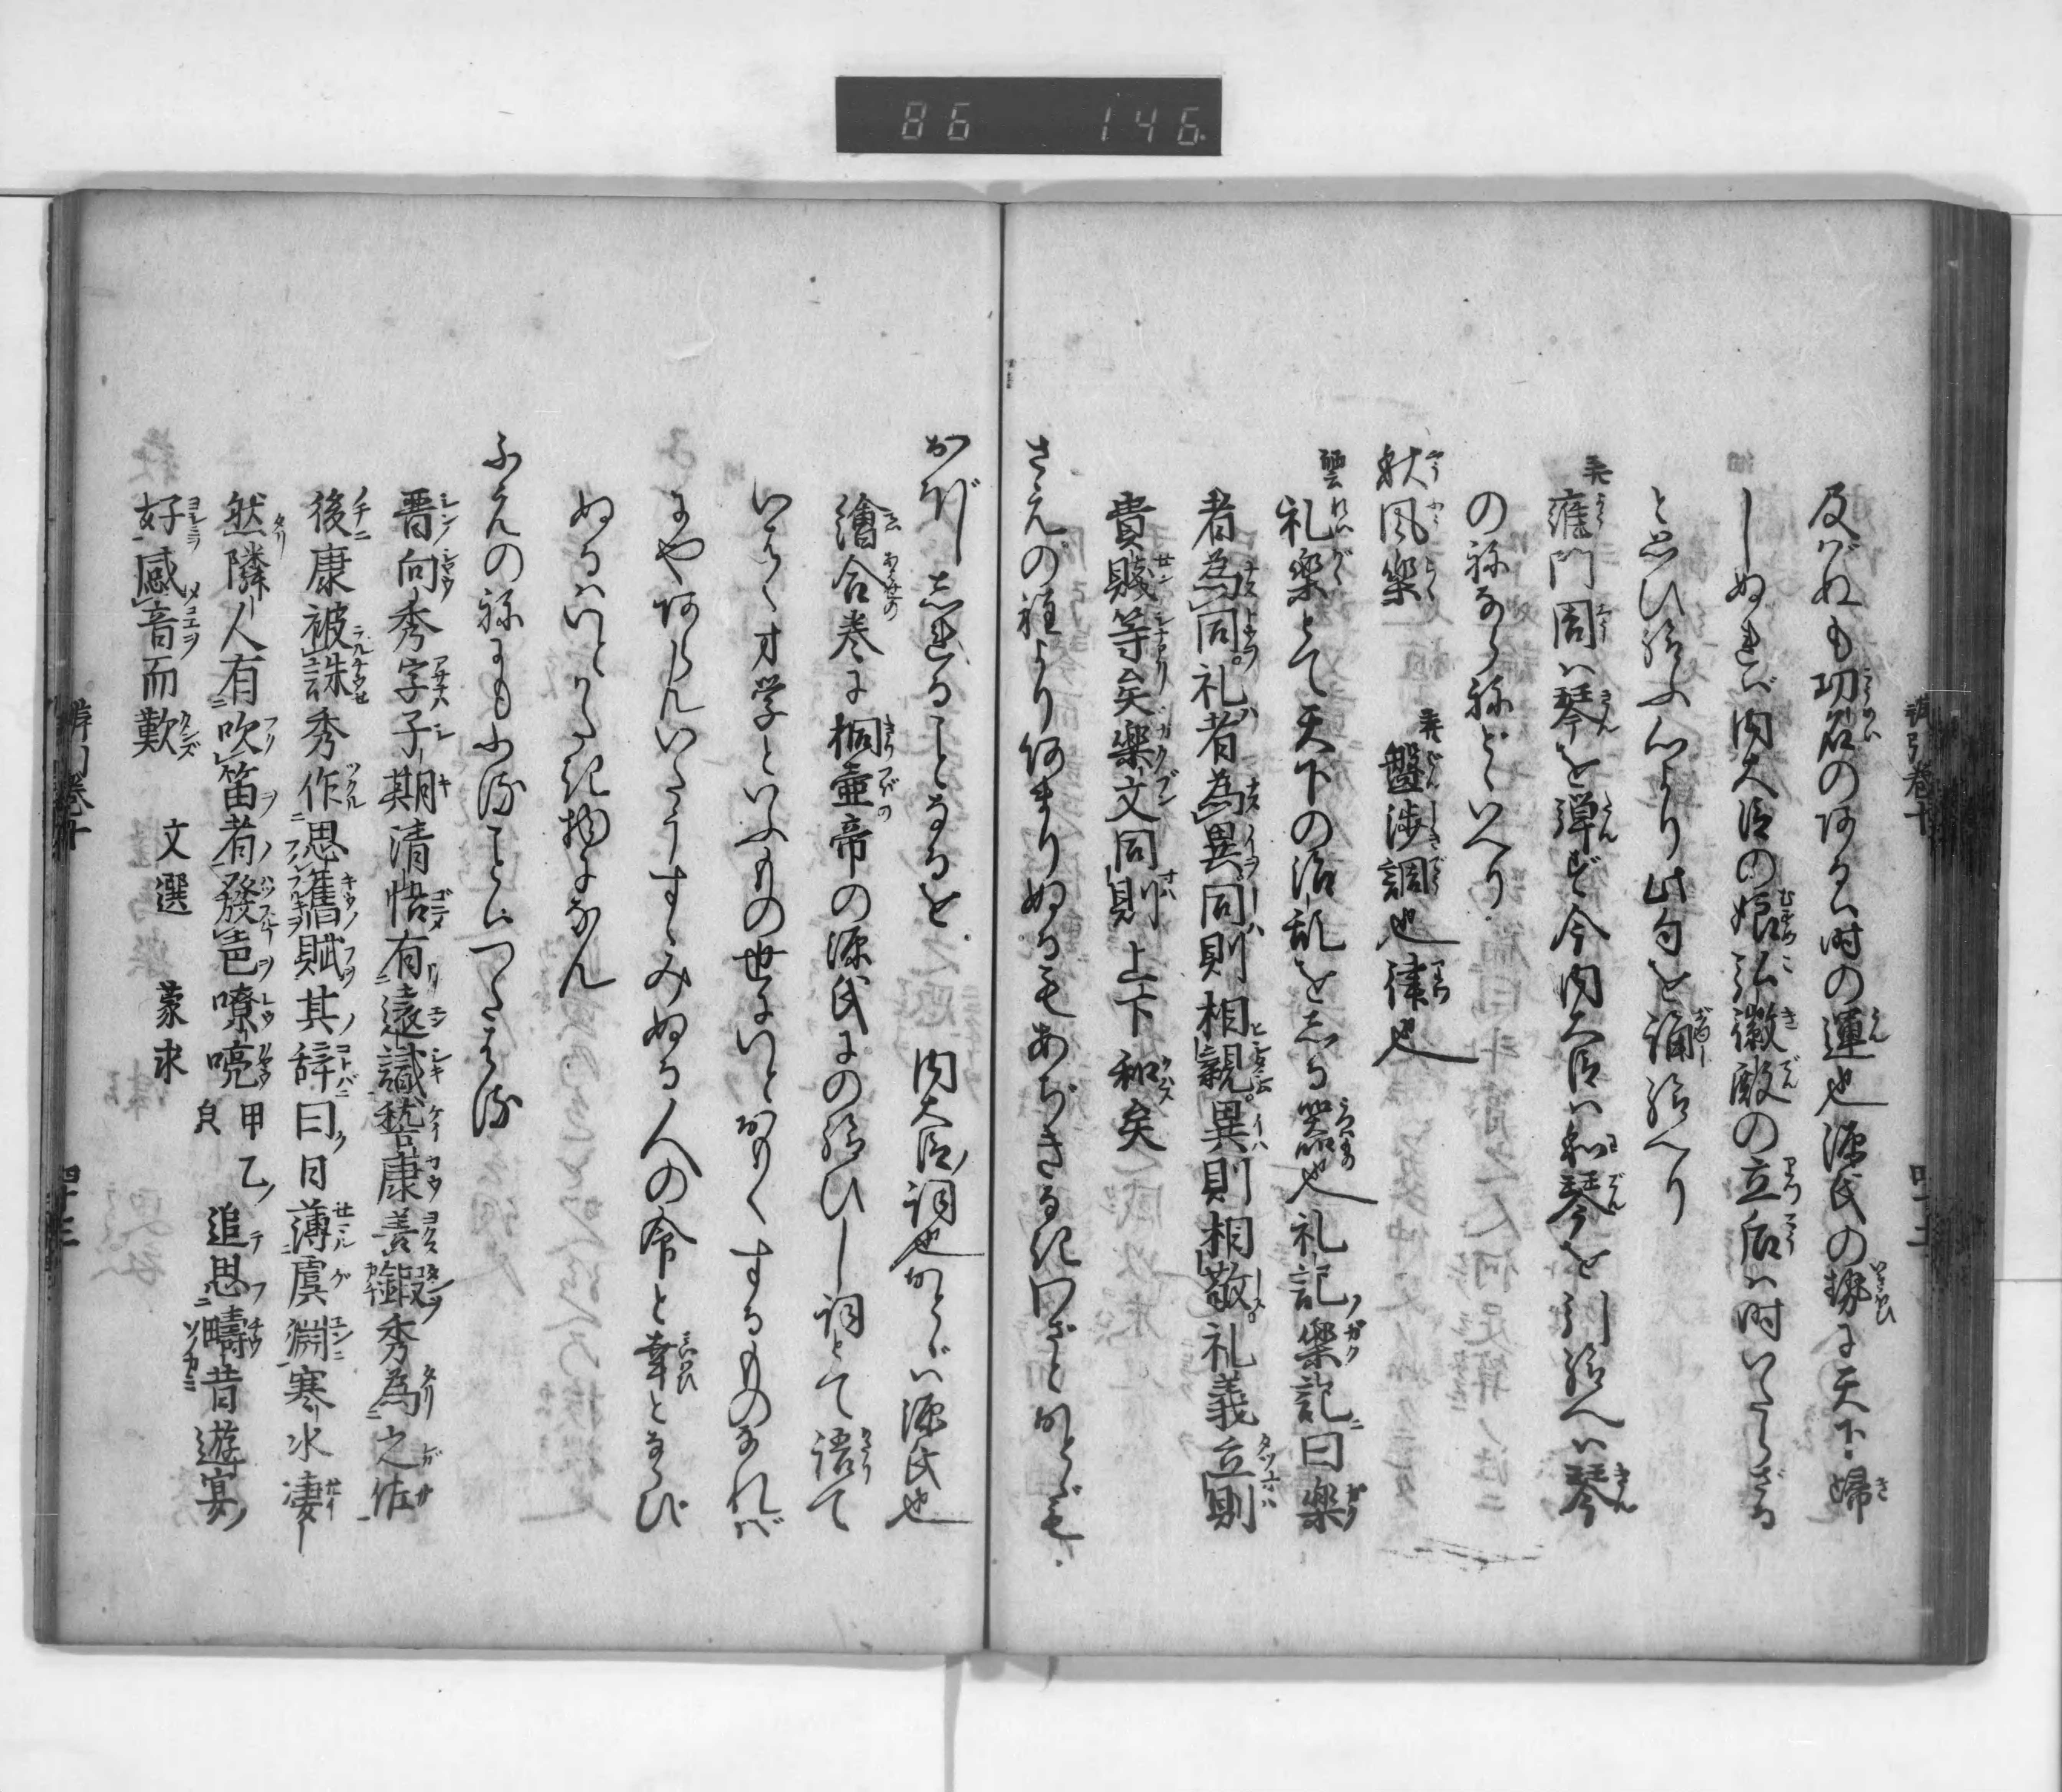 86 146
及ばぬも功名のある時の運也源氏の勢に天下帰
しぬれば内大臣の娘弘徽殿の立后は時いたらざる
と思ひ給ふ心より此句を誦じ給へり
雍門周は琴を弾ず今内大臣は和琴を引給へば琴
のねならねどゝいへり
秋風楽 盤渉調也律也
礼楽とて天下の治乱をしる器也礼記楽記曰楽
者為同礼者為異同則相親異則相敬礼義立則
貴賤等矣楽文同則上下和矣
さえの程より何まりぬるもあぢきなきわざとおとゞも
おぼししれることなるを 内大臣詞也おとゞは源氏也
繪合巻に桐壺帝の源氏にの給ひし詞とて語て
いはく才学といふもの世にいとおもくするものなれば
にやあらんいたうすゝみぬる人の命と幸とならび
ぬるはいとかたき物になん
ふえの音にもふることはつたはる
晋向秀字子期清悟有遠識嵆康善鍛秀為之佐
後康被誅秀作思舊賦其辞曰日薄虞淵寒氷凄
然隣人有吹笛者發声嘹喨 追思疇昔遊宴
好感音而歎 文選 蒙求